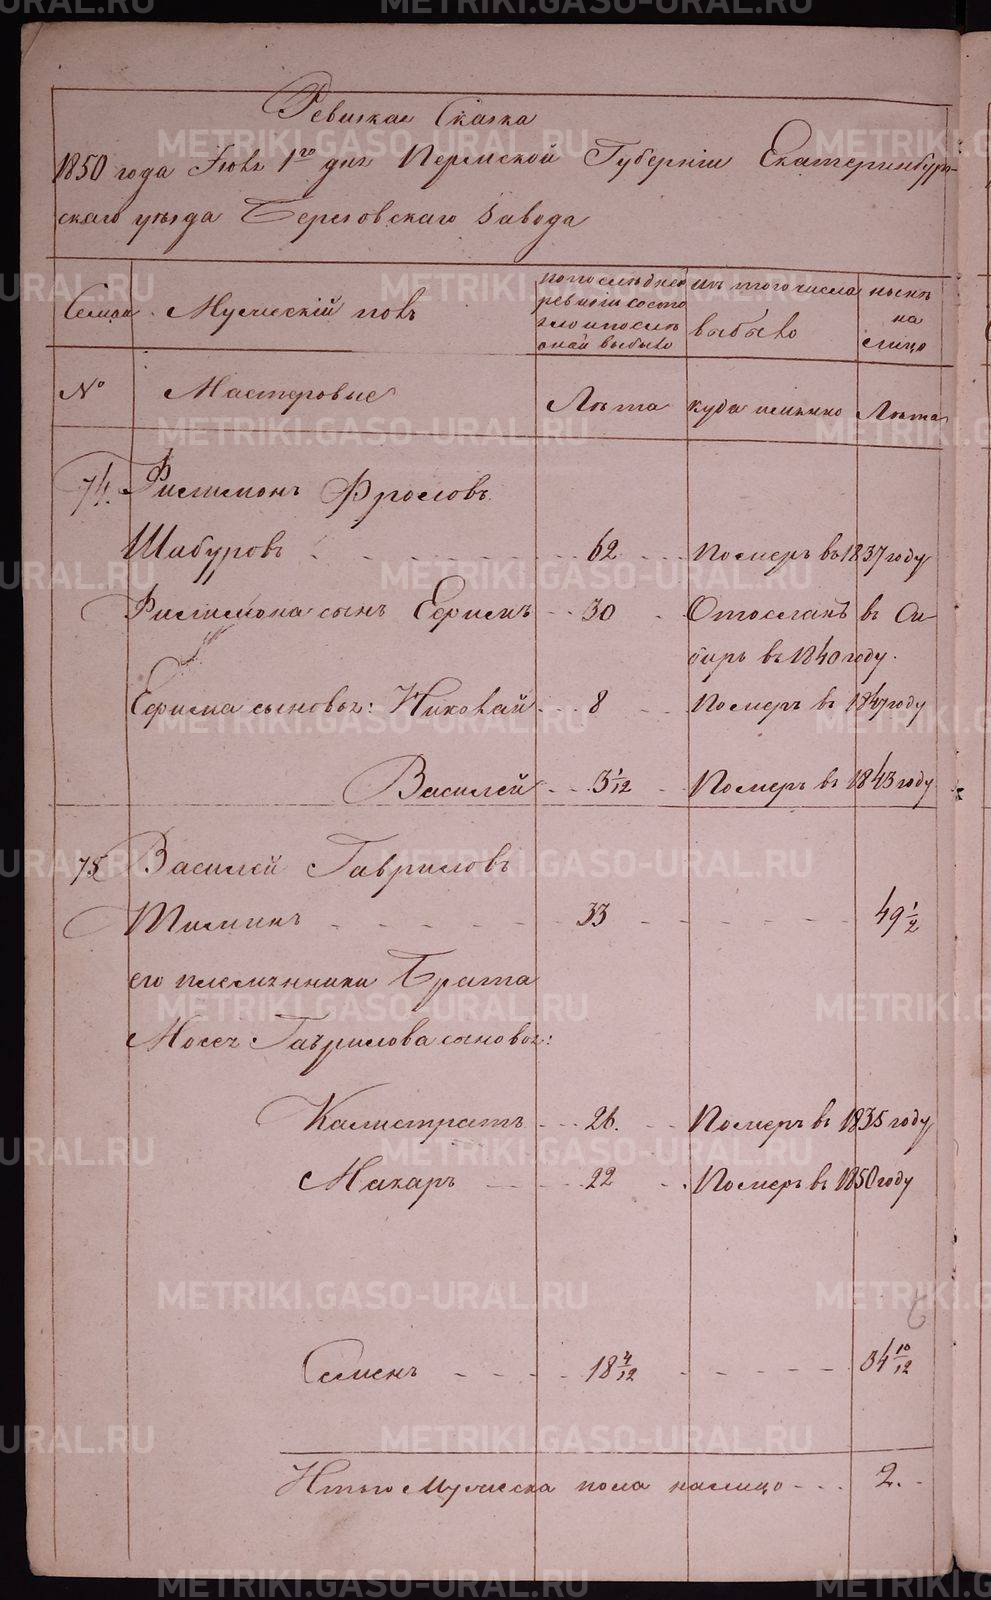 Ревизкая Сказка
1850 года Іюня 1го дня Пермской Губерніи Екатеринбург-
скаго уѣзда Березовскаго Завода
Семьи Мужескій полъ
по последней ревизіи состояло и после оной выбыло
изъ того числа выбыло
нынѣ на лицо
№ Мастеровые Лѣта куда именно Лѣта
74. Филимонъ Фроловъ
Шабуровъ 62 Померъ въ 1837 году
Филимона сынъ Ефимъ 30 Отосланъ въ Си-
бирь въ 1840 году.
Ефима сыновья: Николай 8 Померъ въ 1847 году
Василей 3 1/12 Померъ въ 1843 году
75. Василей Гавриловъ
Тиминъ 33 49 1/2
его племянники Брата
Мосея Гаврилова сыновья:
Калистратъ 26. Померъ въ 1835 году
Макаръ 22 Померъ въ 1850 году
Семенъ 18 4/12 34 10/12
Итого Мужеска пола налицо 2.
METRIKI.GASO-URAL.RU